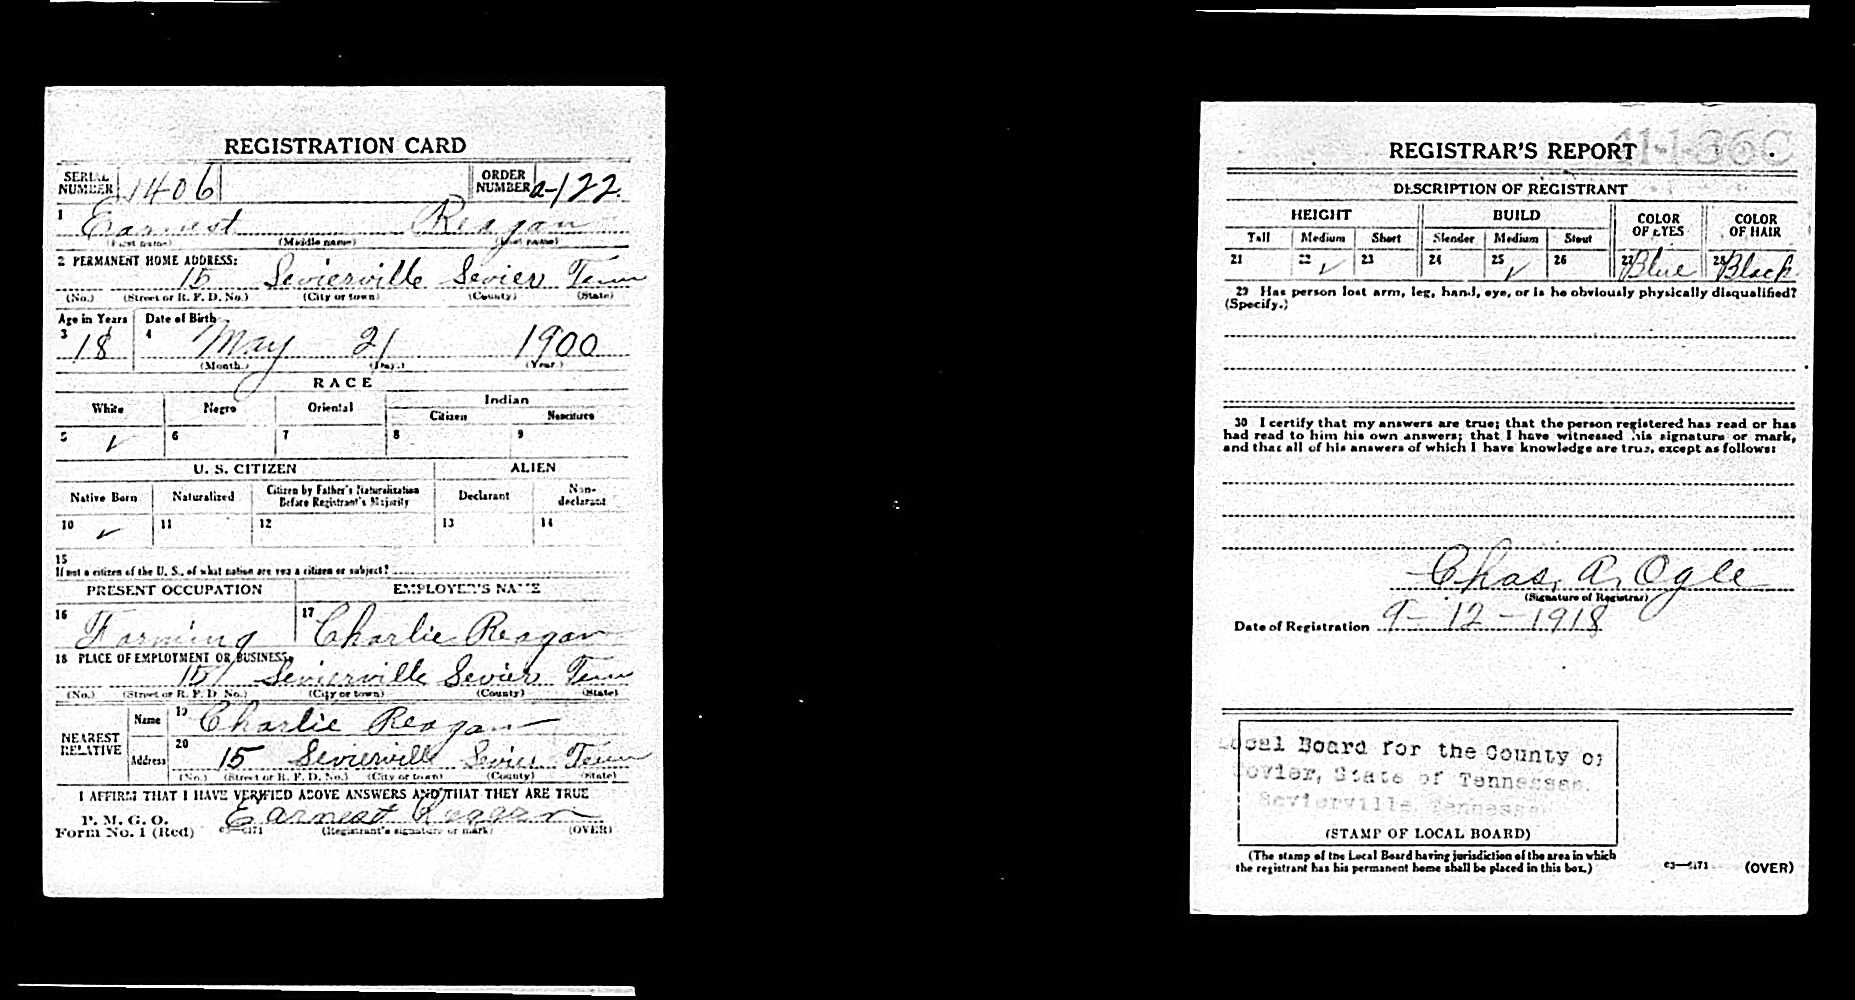 REGISTRATION CARD
SERIAL NUMBER 1406 ORDER NUMBER a-122
1 Earnest Reagan
(First name) (Middle name) (Last name)
2 PERMANENT HOME ADDRESS:
15 Sevierville Sevier Tenn
(No.) (Street or R. F. D. No.) (City or town) (County) (State)
Age in Years Date of Birth
3 18 4 May 21 1900
(Month.) (Day.) (Year.)
RACE
White Negro Oriental Indian
Citizen Noncitizen
5 ✓ 6 7 8 9
U. S. CITIZEN ALIEN
Native Born Naturalized Citizen by Father's Naturalization Before Registrant's Majority Declarant Non-declarant
10 ✓ 11 12 13 14
15
If not a citizen of the U. S., of what nation are you a citizen or subject?
PRESENT OCCUPATION EMPLOYER'S NAME
16 Farming 17 Charlie Reagan
18 PLACE OF EMPLOYMENT OR BUSINESS:
15 Sevierville Sevier Tenn
(No.) (Street or R. F. D. No.) (City or town) (County) (State)
NEAREST RELATIVE Name 19 Charlie Reagan
Address 20 15 Sevierville Sevier Tenn
(No.) (Street or R. F. D. No.) (City or town) (County) (State)
I AFFIRM THAT I HAVE VERIFIED ABOVE ANSWERS AND THAT THEY ARE TRUE
P. M. G. O.
Form No. 1 (Red) 03—6171 Earnest Reagan
(Registrant's signature or mark) (OVER)
41-1-36C
REGISTRAR'S REPORT
DESCRIPTION OF REGISTRANT
HEIGHT BUILD COLOR OF EYES COLOR OF HAIR
Tall Medium Short Slender Medium Stout
21 22 ✓ 23 24 25 ✓ 26 27 Blue 28 Black
29 Has person lost arm, leg, hand, eye, or is he obviously physically disqualified?
(Specify.)
30 I certify that my answers are true; that the person registered has read or has
had read to him his own answers; that I have witnessed his signature or mark,
and that all of his answers of which I have knowledge are true, except as follows:
Chas. A. Ogle
(Signature of Registrar)
Date of Registration 9-12-1918
Local Board for the County of
Sevier, State of Tennessee.
Sevierville, Tennessee
(STAMP OF LOCAL BOARD)
(The stamp of the Local Board having jurisdiction of the area in which
the registrant has his permanent home shall be placed in this box.)
03—6171 (OVER)